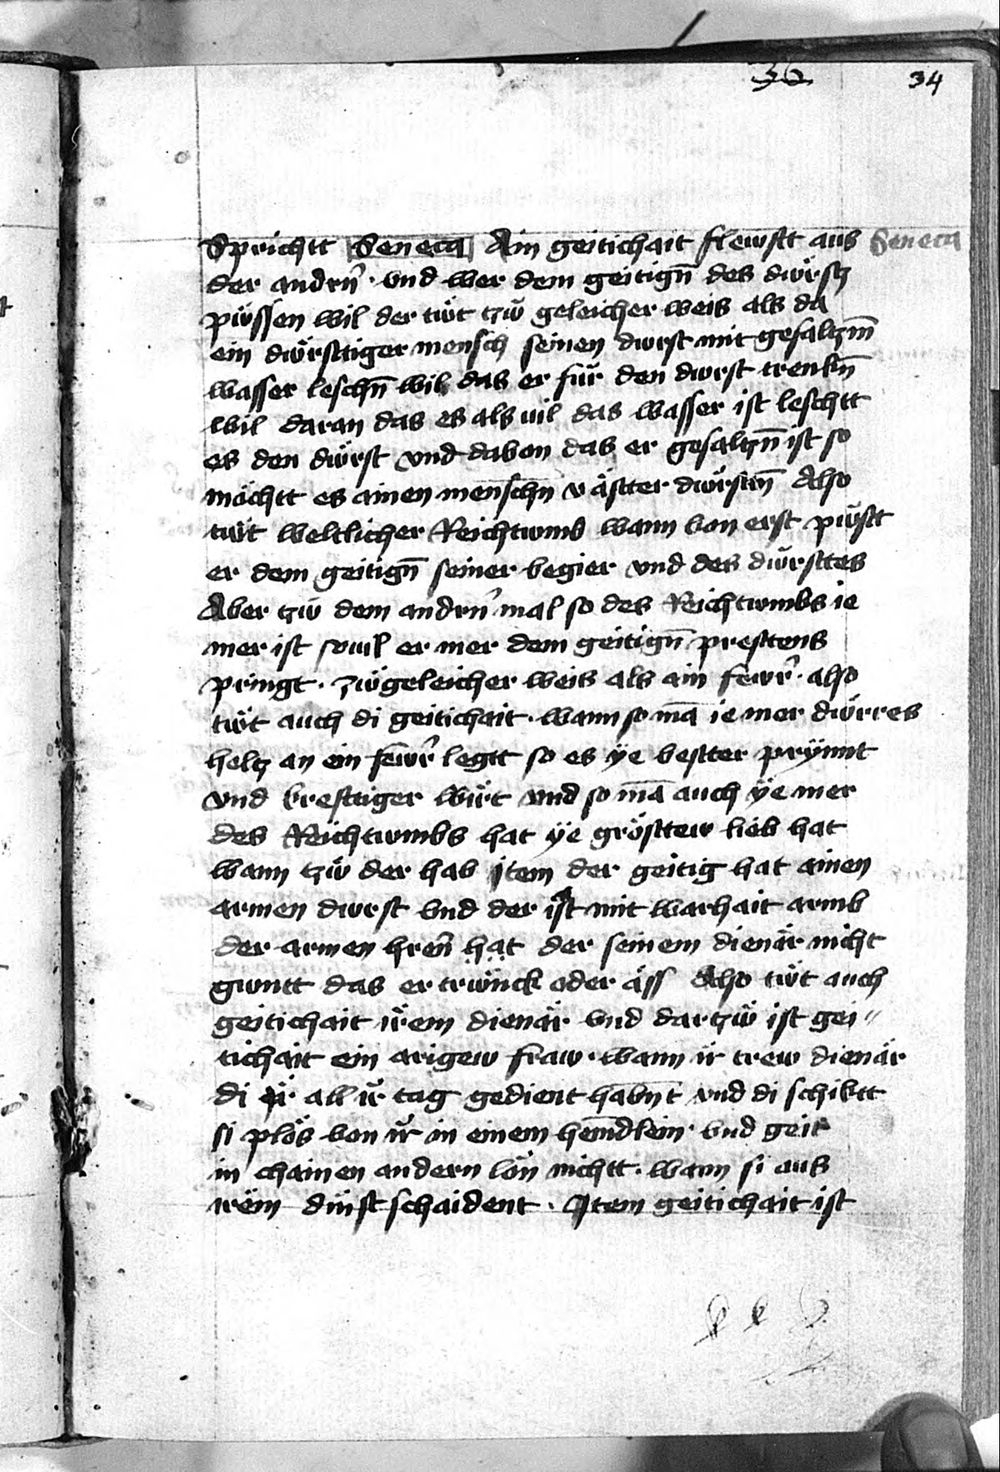 36 34
Sprichtt Seneca Ain geitichait flewstt aus Seneca
der andrn̄ · vnd wer dem geitign̄ des dwr̈stz
pws̈sen wil der twẗ tzw̆ geleicher weis als da
ein dwr̈sttiger mensch seinen dwrst mit gesaltzm̄
wasser leschn̄ wil das er fur̈ den dwrst trenkn̄
wil daran das es als uil das wasser ist leschtt
es den dwr̈st vnd dauon das er gesaltzn̄ ist so
mächtt es ainen menschn̄ västter dwr̈stn̄ Also
twẗ weltlicher Reichtwmb wann von erst pws̈tt
er dem geitign̄ seiner begier vnd des dwr̈sttes
Aber tzw dem andrn̄ mal so des Reichtwmbs ie
mer ist souil er mer dem geitign̄ presttens
pringt · zwg̈eleicher weis als ain fewr̄ · also
twẗ auch di geitichait · wann so mā ie mer dwr̈res
holtz an ein fewr̄ legtt so es ÿe vestter prÿnnt
vnd kresttiger wirẗ vnd so mā auch ÿe mer
des Reichtwmbs hat ÿe grösttew lieb hat
wann tzw̆ der hab Item der geitig hat ainen
armen dwrst vnd der ist mit warhait armb
der armen hren̄ hat der seinem dienär nicht
gwntt das er trwn̈ck oder äss Also twẗ auch
geitichait ir̈em dienär vnd dartzw̆ ist gei〃
tichait ein arigew fraw · wann ir̈ trew dienär
di ir̈ all ir̈ tag gedient habn̄t vnd di schiktt
si plös von ir̈ in einem hemdlein · vnd geit
in chainen andern lön nichtt · wann si aus
irëm dinst schaident · Item geitichait ist